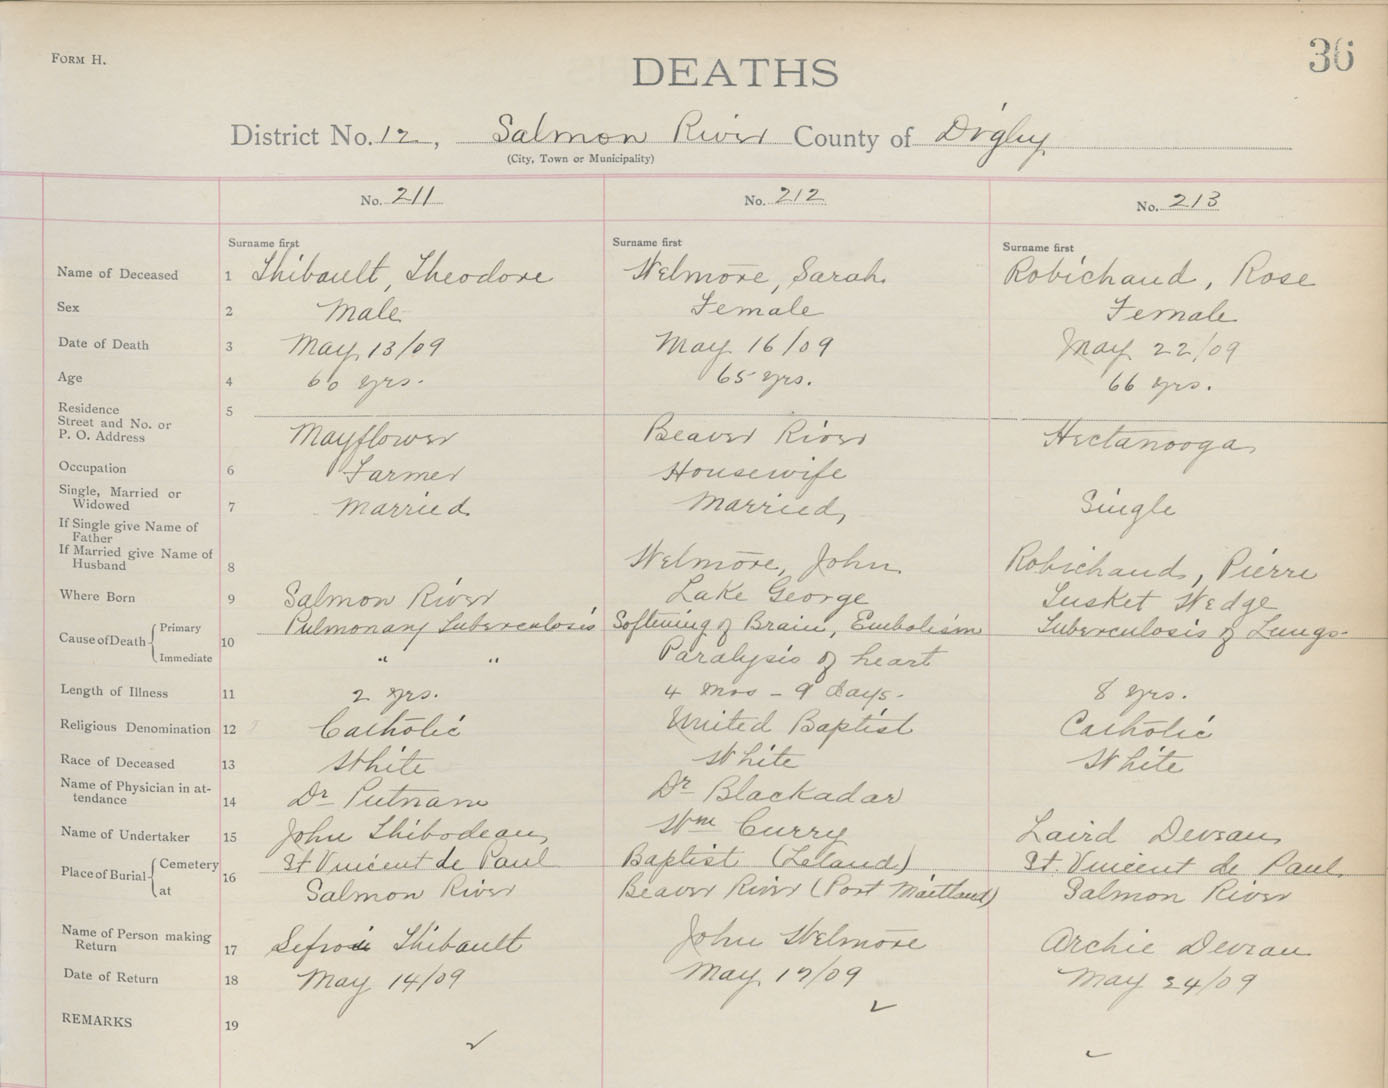 FORM H.
36
DEATHS
District No. 12, Salmon River County of Digby
(City, Town or Municipality)
No. 211 No. 212 No. 213
Surname first Surname first Surname first
Name of Deceased 1 Thibault, Theodore Welmore, Sarah Robichaud, Rose
Sex 2 Male Female Female
Date of Death 3 May 13/09 May 16/09 May 22/09
Age 4 60 yrs. 65 yrs. 66 yrs.
Residence 5
Street and No. or
P. O. Address Mayflower Beaver River Hectanooga
Occupation 6 Farmer Housewife
Single, Married or
Widowed 7 Married Married Single
If Single give Name of
Father
If Married give Name of
Husband 8 Welmore, John Robichaud, Pierre
Where Born 9 Salmon River Lake George Tusket Wedge
Cause of Death Primary 10 Pulmonary Tuberculosis Softening of Brain, Embolism Tuberculosis of Lungs
Immediate " " Paralysis of heart
Length of Illness 11 2 yrs. 4 mos - 9 days. 8 yrs.
Religious Denomination 12 Catholic United Baptist Catholic
Race of Deceased 13 White White White
Name of Physician in at-
tendance 14 Dr Putnam Dr Blackadar
Name of Undertaker 15 John Thibodeau Wm Curry Laird Deveau
Place of Burial Cemetery 16 St Vincent de Paul Baptist (Leland) St. Vincent de Paul
at Salmon River Beaver River (Port Maitland) Salmon River
Name of Person making
Return 17 Thibault John Welmore Archie Deveau
Date of Return 18 May 14/09 May 17/09 May 24/09
REMARKS 19